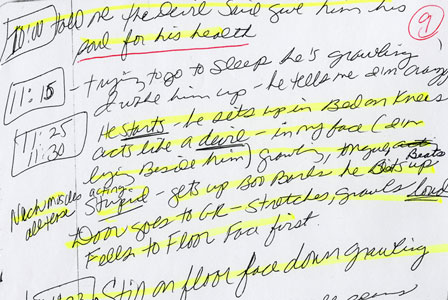 9
10:00 told me the Devil Said give him his
soul for his health
11:15 - trying to go to Sleep he's growling
I woke him up - he tells me I'm crazy
11:25 He Starts - he sets up in Bed on Knees
11:30 acts like a devil - in my face (I'm
lying Beside him) growling, tongue,
Neck muscles acting Stupid - gets up Boo Barks he Beats up
all tense
Door goes to GR - Stretches, growls loud
Falls to Floor Face first.
Still on floor face down growling